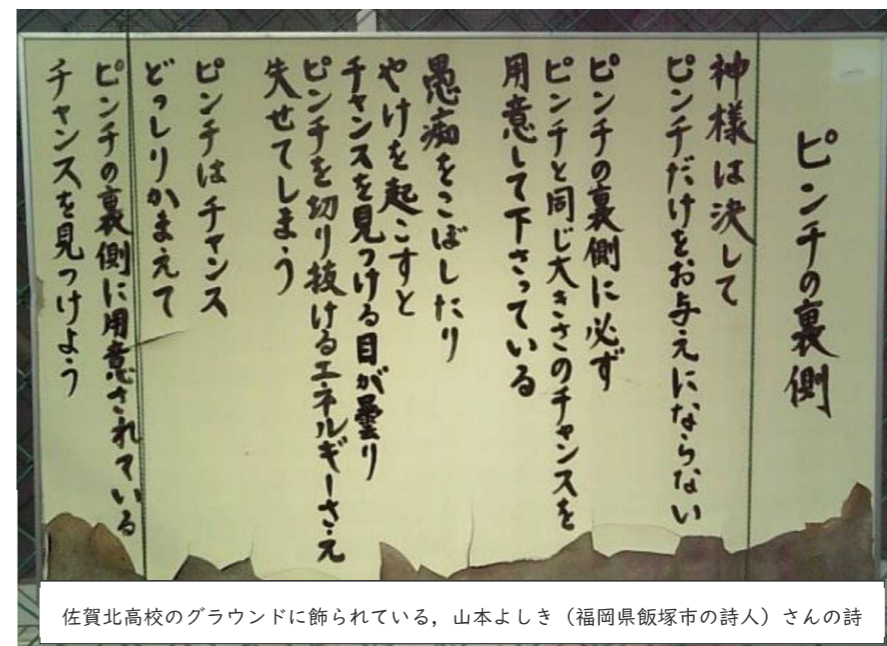 ピンチの裏側
神様は決して
ピンチだけをお与えにならない
ピンチの裏側に必ず
ピンチと同じ大きさのチャンスを
用意して下さっている
愚痴をこぼしたり
やけを起こすと
チャンスを見つける目が曇り
ピンチを切り抜けるエネルギーさえ
失せてしまう
ピンチはチャンス
どっしりかまえて
ピンチの裏側に用意されている
チャンスを見つけよう
佐賀北高校のグラウンドに飾られている，山本よしき（福岡県飯塚市の詩人）さんの詩